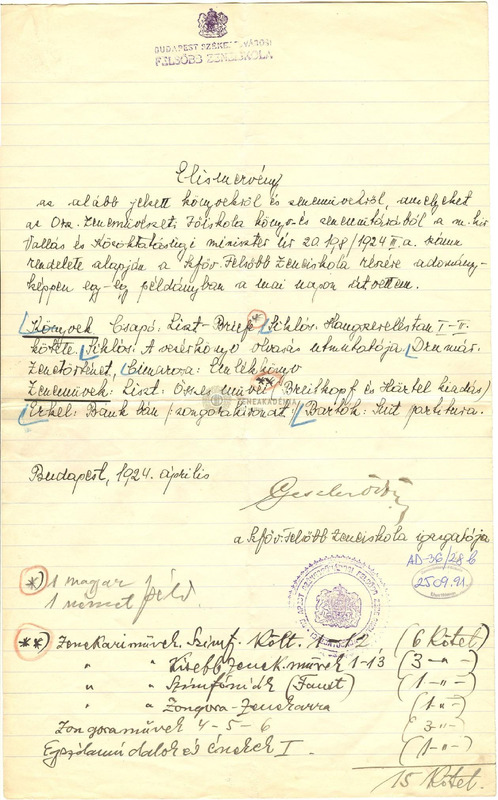 BUDAPEST SZÉKESFŐVÁROSI
FELSŐBB ZENEISKOLA
Elismervény
az alább jelzett könyvekről és zeneművekről, amelyeket
az Orsz. Zeneművészeti Főiskola könyv- és zeneműtárából a m. kir.
Vallás és Közoktatásügyi miniszter úr 20.108/1924 II. a. számu
rendelete alapján a Szföv. Felsőbb Zeneiskola részére adomány-
képpen egy-egy példányban a mai napon átvettem.
Könyvek. Csapó: Liszt-Briefe *) Siklós: Hangszereléstan I-II.
kötete. Siklós: A vezérkönyv olvasás utmutatója. Demár:
Zenetörténet. Cimarosa: Emlékkönyv
**
Zeneművek: Liszt: Összes művei (Breitkopf és Härtel kiadás)
Erkel: Bánk bán (zongorakivonat) Bartók: Suit partitura.
ZENEAKADÉMIA
Budapest, 1924. április
a Szföv. Felsőbb Zeneiskola igazgatója
AD-36/28-b
2509.91.
*) 1 magyar
1 német péld.
**) Zenekari művek. Szimf. Költ. 1-12 (6 kötet)
" " Kisebb zenek. művek 1-13 (3 -"-)
" " Szimfóniák (Faust) (1 -"-)
" " Zongora-Zenekarra (1 -"-)
Zongoraművek 4-5-6 (3 -"-)
Egyszólamú dalok és énekek I. (1 -"-)
15 kötet.